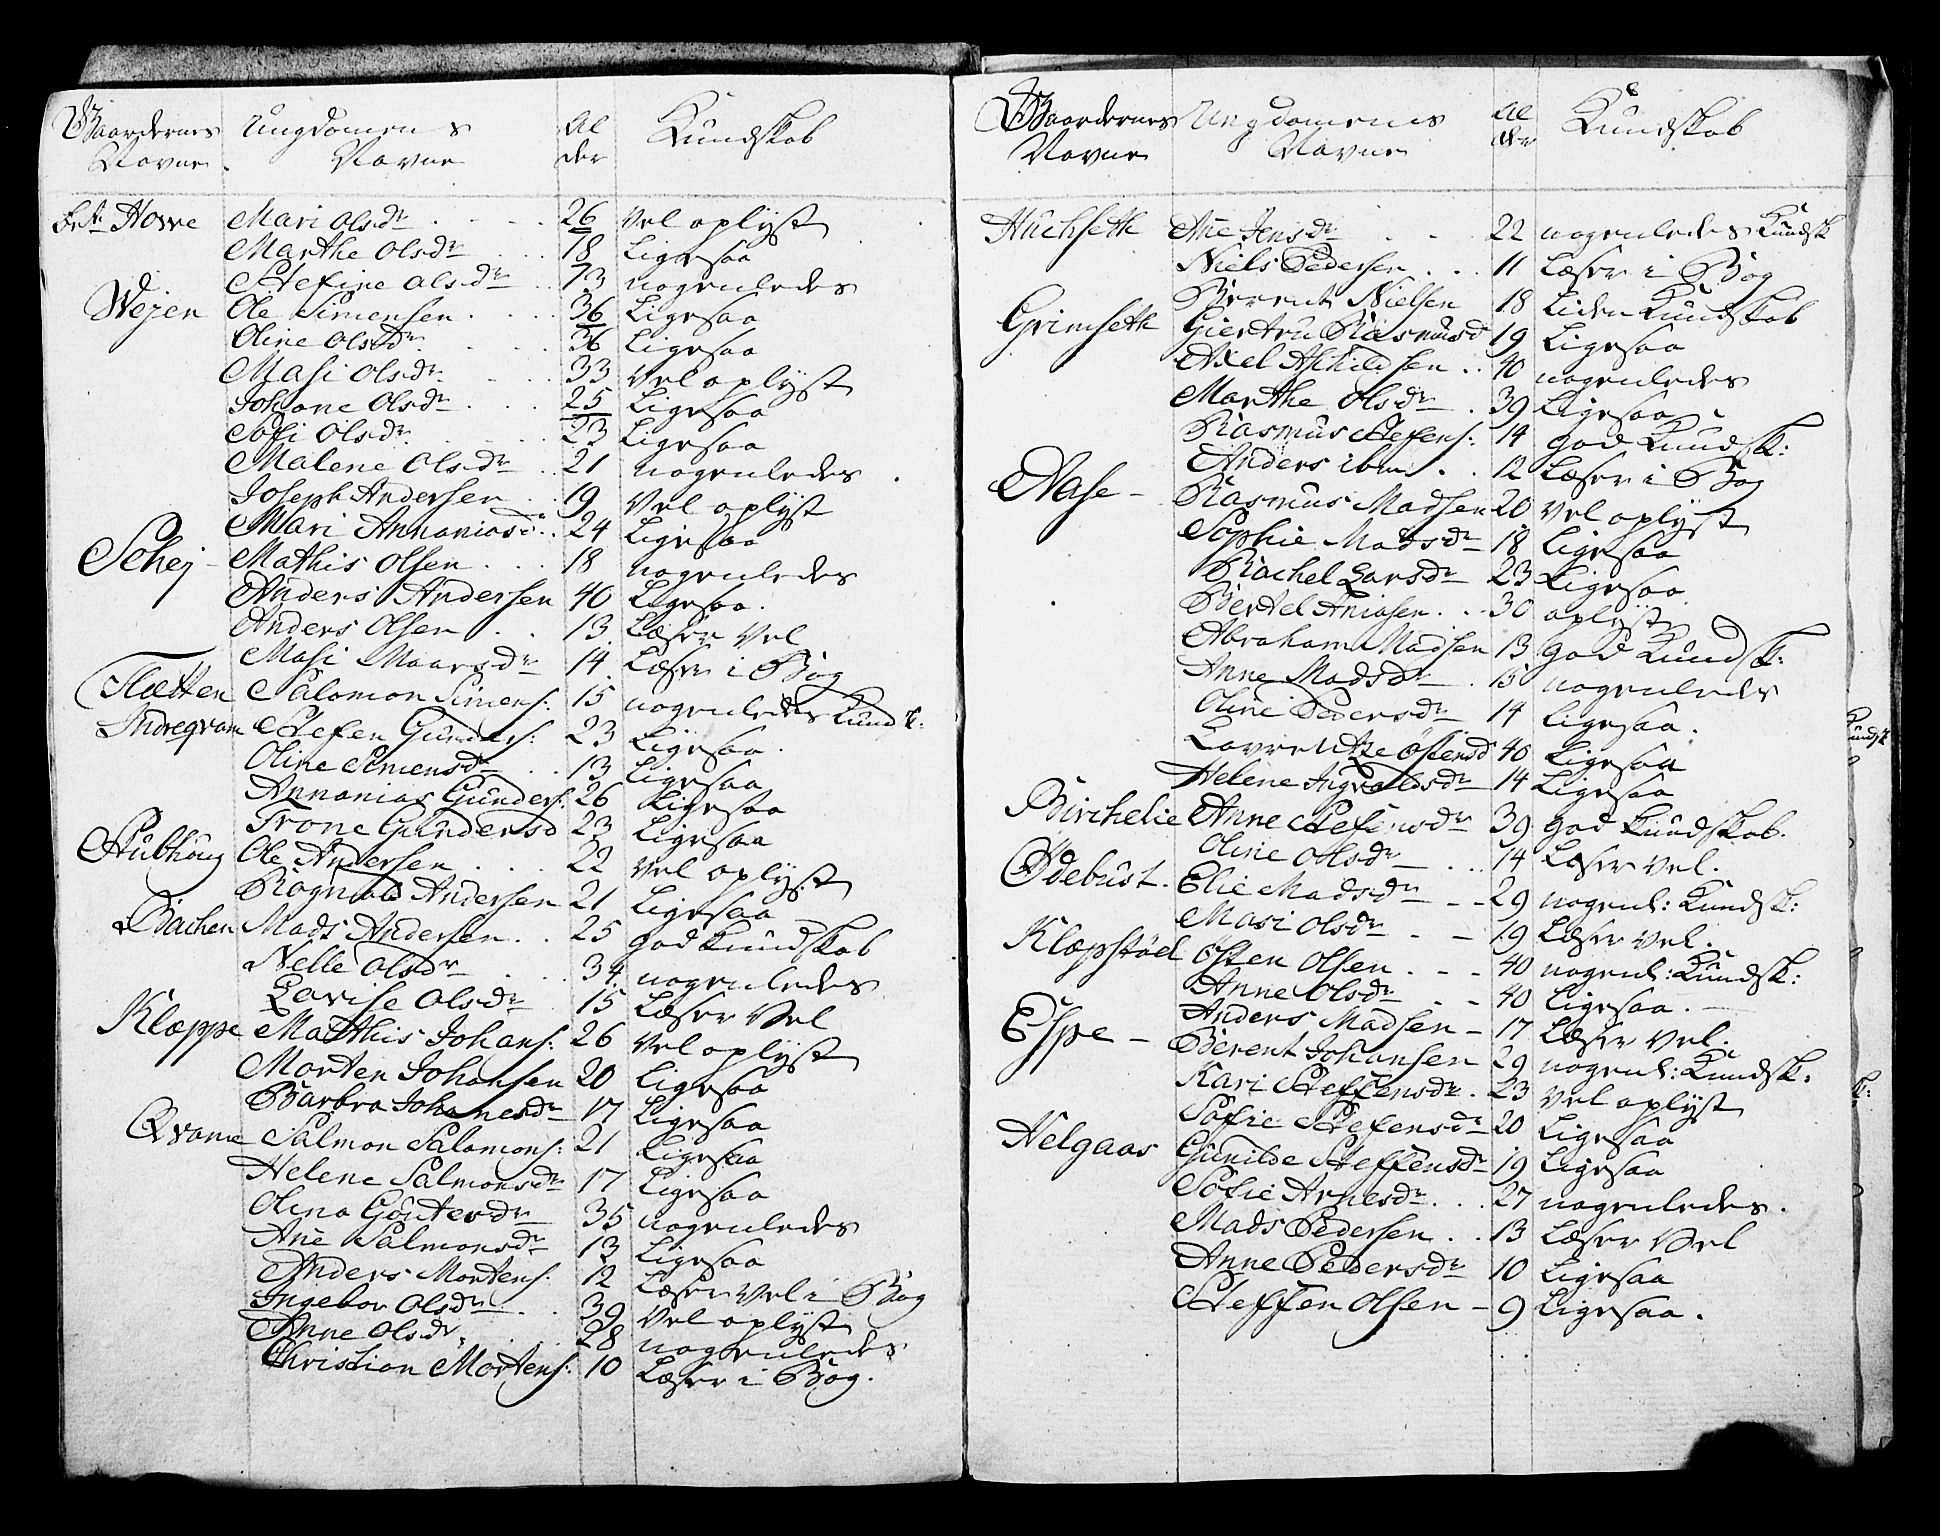 Gaardernes Navne. Ungdomens Navne Al der Kundskab
Hovve Mari Olsdr 26 Vel oplyst
Marthe Olsdr 18 Ligesaa
Stefine Olsdr 13 nogenledes
Wejen Ole Simensen 36 Ligesaa
Oline Olsdr 36 Ligesaa
Masi Olsdr 33 Vel oplyst
Johane Olsdr 25 Ligesaa
Sofi Olsdr 23 Ligesaa
Malene Olsdr 21 nogenledes
Joseph Andersen 19 Vel oplyst
Mari Annaniasd 24 Ligesaa
Schej - Mathis Olsen 18 nogenledes
Anders Andersen 40 Ligesaa.
Anders Olsen 13 Læser Vel
Masi Maarsdr 14 Læser i Bog
Flætten Salomon Simens: 15 nogenledes Kundsk:
Indreqvam Stefen Gunders: 23 Ligesaa.
Oline Simensdr 13 Ligesaa
Annanias Gunders: 26 Ligesaa
Trone Gundersd 23 Ligesaa
Stubhoug Ole Andersen 22 Vel oplyst
Rognald Andersen 21 Ligesaa
Bachen Mads Andersen 25 god Kundskab
Nelle Olsdr 34 nogenledes
Lavise Olsdr 15 Læser Vel
Klæppe Matthis Johans: 26 Vel oplyst
Morten Johansen 20 Ligesaa
Barbra Johanesdr 17 Ligesaa
Qvame Salmon Salamons: 21 Ligesaa
Helene Salmonsdr 17 Ligesaa
Olina Goutersdr 35 nogenledes
Ane Salmonsdr 13 Ligesaa
Anders Mortens: 12 Læser Vel i Bog
Ingebor Olsdr 39 Vel oplyst
Anne Olsdr 28 nogenledes
Christian Mortens: 10 Læser i Bog.
Gaardernes Navne Ungdomens Navne Al der Kundskab
Huchseth Ane Jensdr 22 nogenledes Kundsk
Niels Pedersen 11 Læser i Bog
Berent Nielsen 18 Liden Kundskab
Grimseth Giertru Rasmusd 19 Ligesaa
Axel Aschildsen 40 nogenledes
Marthe Olsdr 39 Ligesaa
Rasmus Stefens: 14 god Kundsk:
Anders ibm 12 Læser i Bog
Nase - Rasmus Madsen 20 Vel oplyst
Sophie Madsdr 18 Ligesaa
Rachel Larsdr 23 Ligesaa
Bertel Aniasen 30 oplyst
Abraham Madsen 13 god Kundsk:
Anne Madsdr 15 nogenledes
Oline Pedersdr 14 Ligesaa.
Lavrentze Östensd 40 Ligesaa
Helene Ingvaldsdr 14 Ligesaa
Birchelie Anne Stefensdr 39 god Kundskab.
Oline Olsdr 14 Læser vel.
Ödebust. Elie Madsdr 29 nogenl: Kundsk:
Masi Olsdr 19 Læser vel.
Klæpstöel Östen Olsen 40 nogenl: Kundsk:
Anne Olsdr 40 Ligesaa.
Espe - Anders Madsen 17 Læser vel.
Berent Johansen 29 nogenl: Kundsk:
Kari Steffensdr 23 Vel oplyst
Sofie Stefensdr 20 Ligesaa
Helgaas Gunilde Steffensdr 19 Ligesaa
Sofie Arnesdr 27 nogenledes.
Mads Pedersen 13 Læser Vel
Anne Pedersdr 10 Ligesaa
Steffen Olsen - 9 Ligesaa.